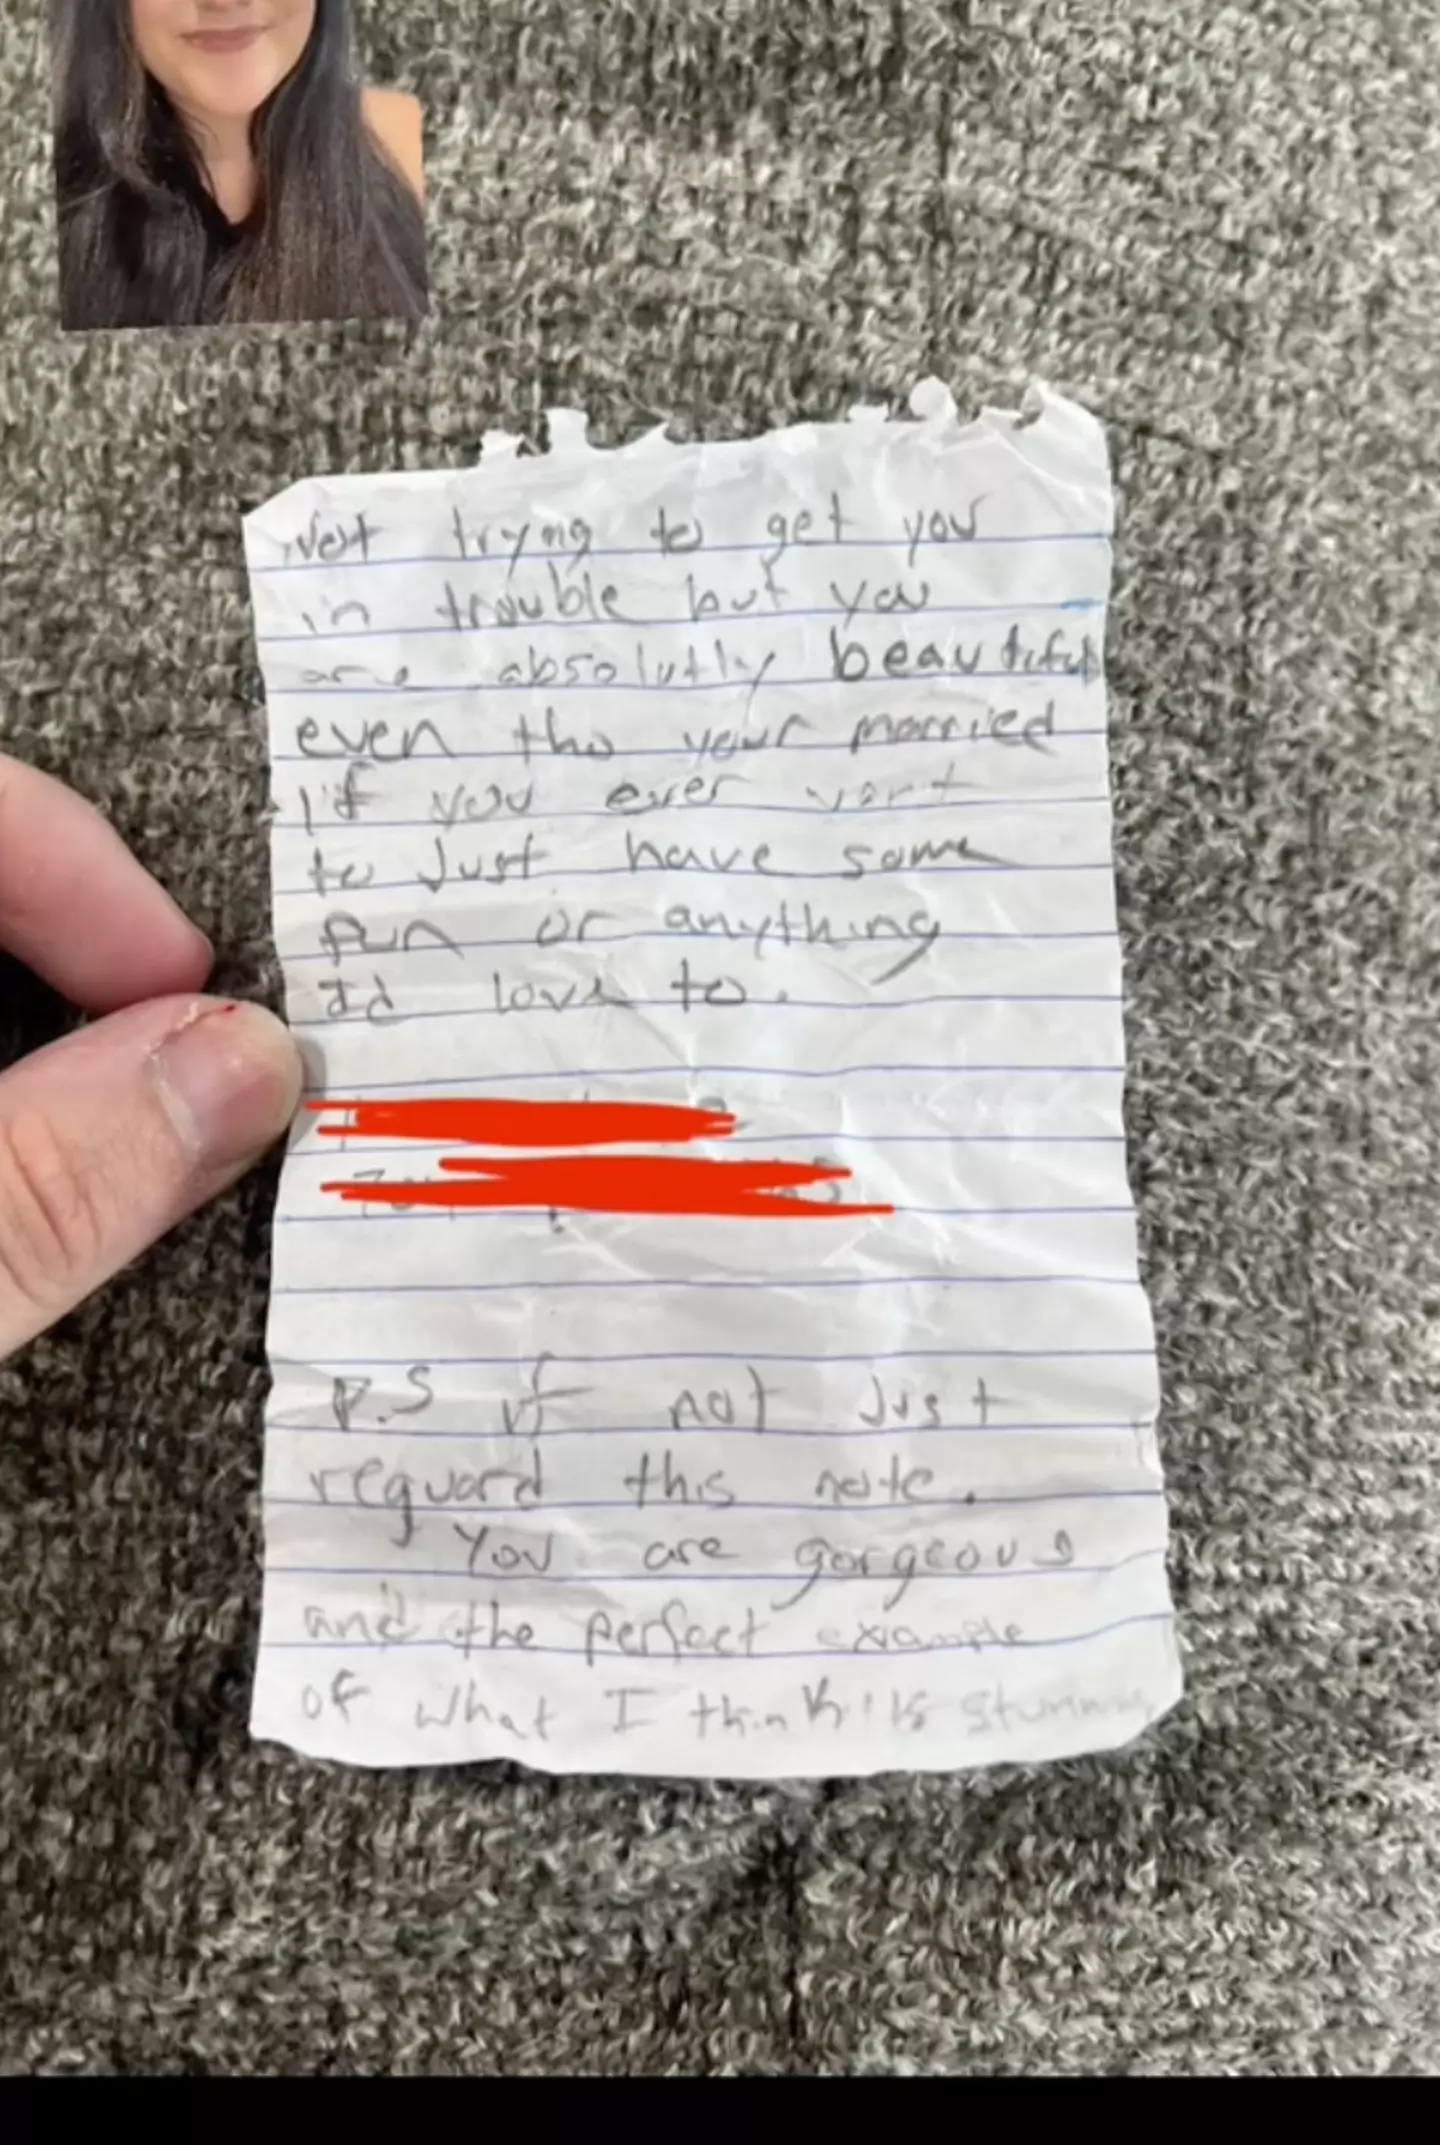 Not trying to get you
in trouble but you
are absolutly beautiful
even tho your married
if you ever want
to Just have some
fun or anything
Id love to.
P.S if not Just
reguard this note.
You are gorgeous
and the perfect example
of what I think is stunning